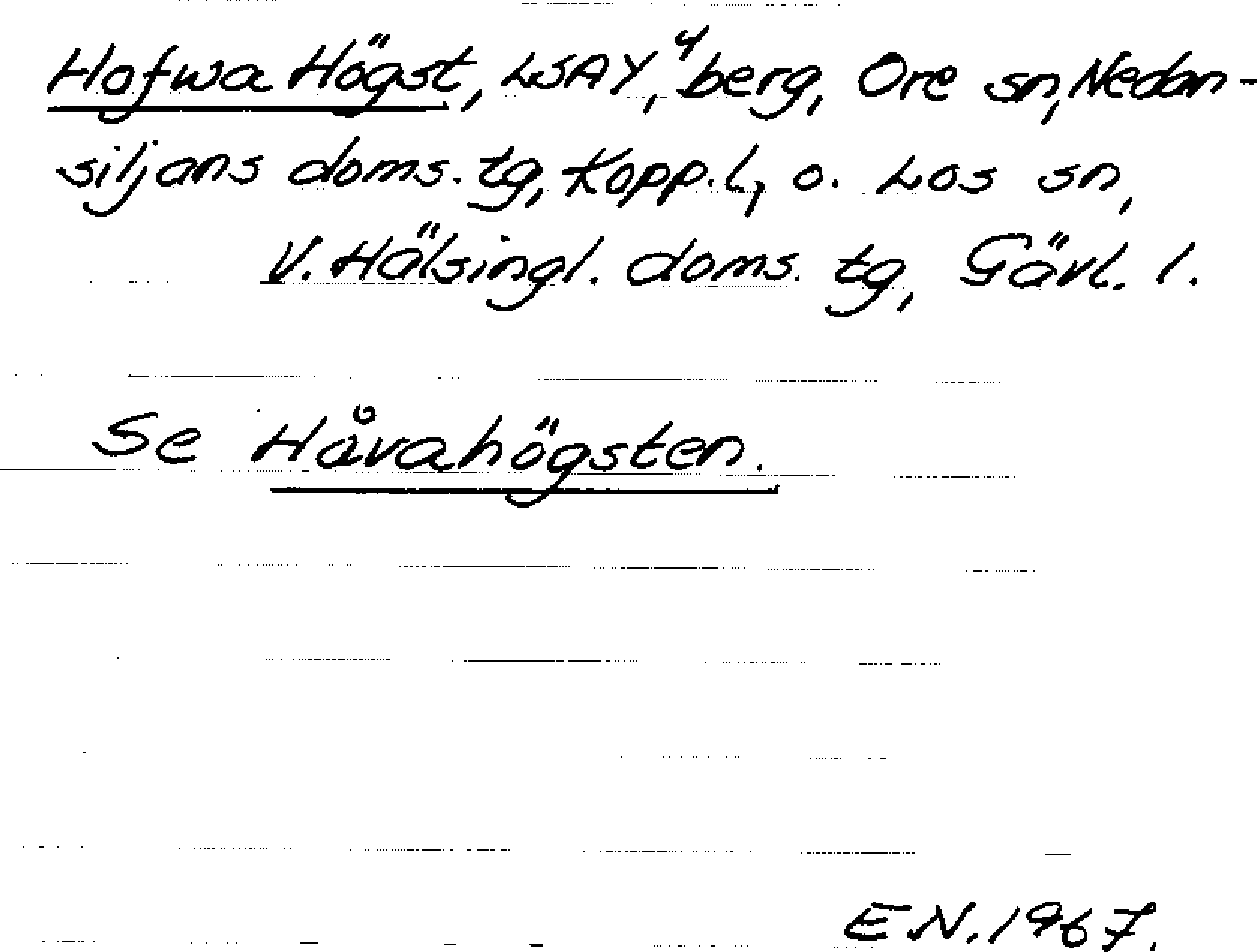 Hofwa Högst, LSAY, 4 berg, Ore sn, Nedan-
siljans doms. tg, Kopp. l, o. Los sn,
V. Hälsingl. doms. tg, Gävl. l.
Se Håvahögsten.
E.N. 1967.